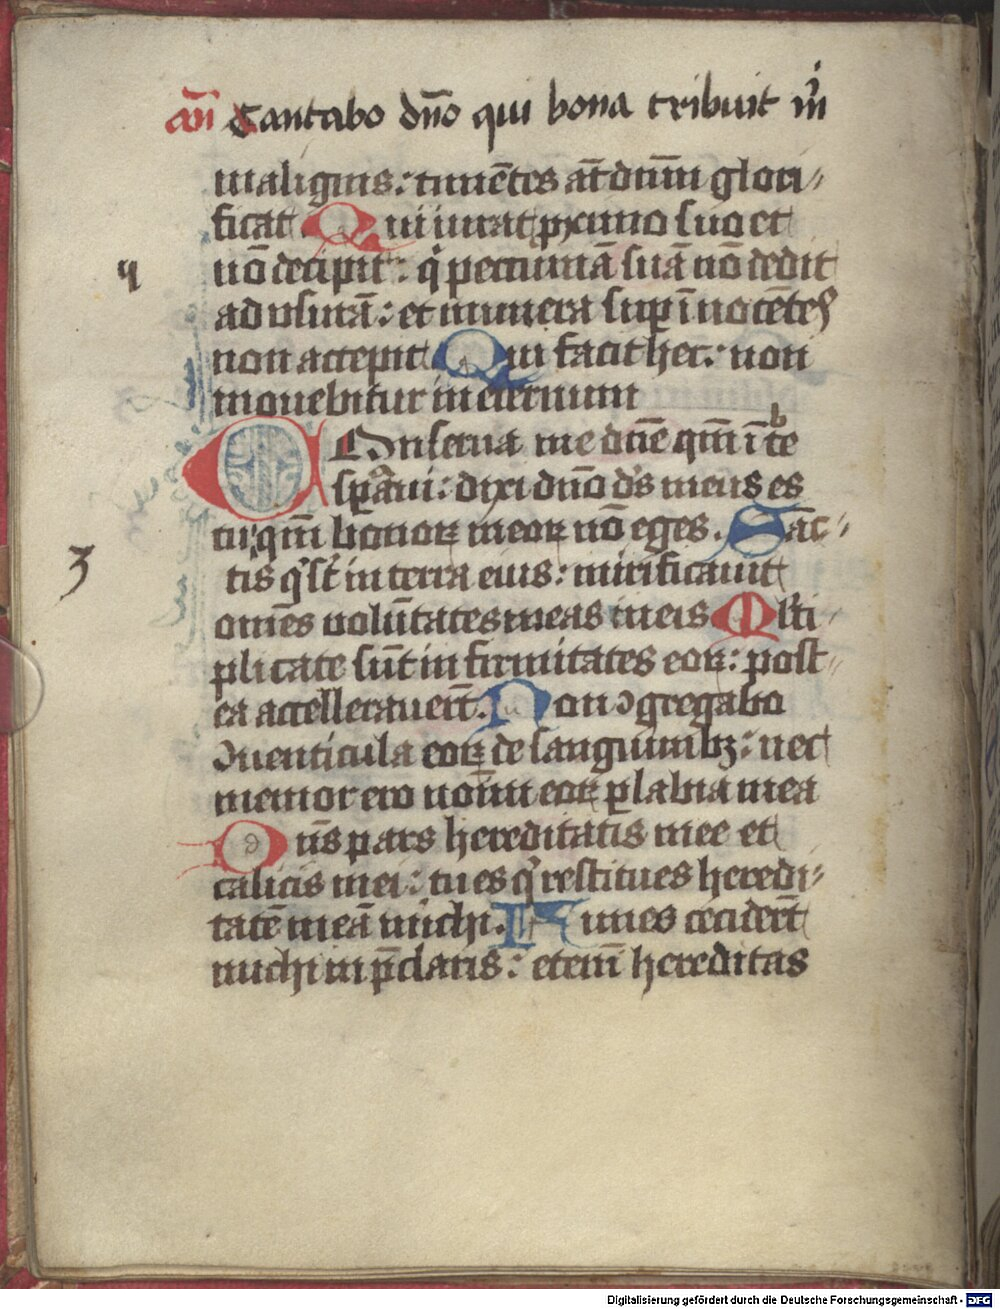 an̄ Cantabo dn̄o qui bona tribuit m̄i
malignus: timētes aūt dn̄um glori-
ficat. Qui iurat ꝓximo suo et
nō decipit: qͥ peccuniā suā nō dedit
q
ad vsurā: et munera suꝑ īnocētes
non accepit Qui facit hec: non
mouebitur in eternum
COnserua me dn̄e qm̄ ī te
sꝑaui: dixi dn̄o ds̄ meus es
tu qm̄ bonoꝝ meoꝝ nō eges. Sāc-
tis qͥ st̄ in terra eius: mirificauit
3
om̄es volūtates meas in eis Ml̄ti-
plicate sūt infirmitates eoꝝ: post-
ea accellerauert̄. Non ꝯgregabo
ꝯuenticula eoꝝ de sanguinibꝫ: nec
memor ero noīm eoꝝ ꝑ labia mea
Dn̄s pars hereditatis mee et
calicis mei: tu es qͥ restitues heredi-
tatē meā michi. Funes cecidert̄
michi in p̄claris: eteni̅ hereditas
Digitalisierung gefördert durch die Deutsche Forschungsgemeinschaft - DFG